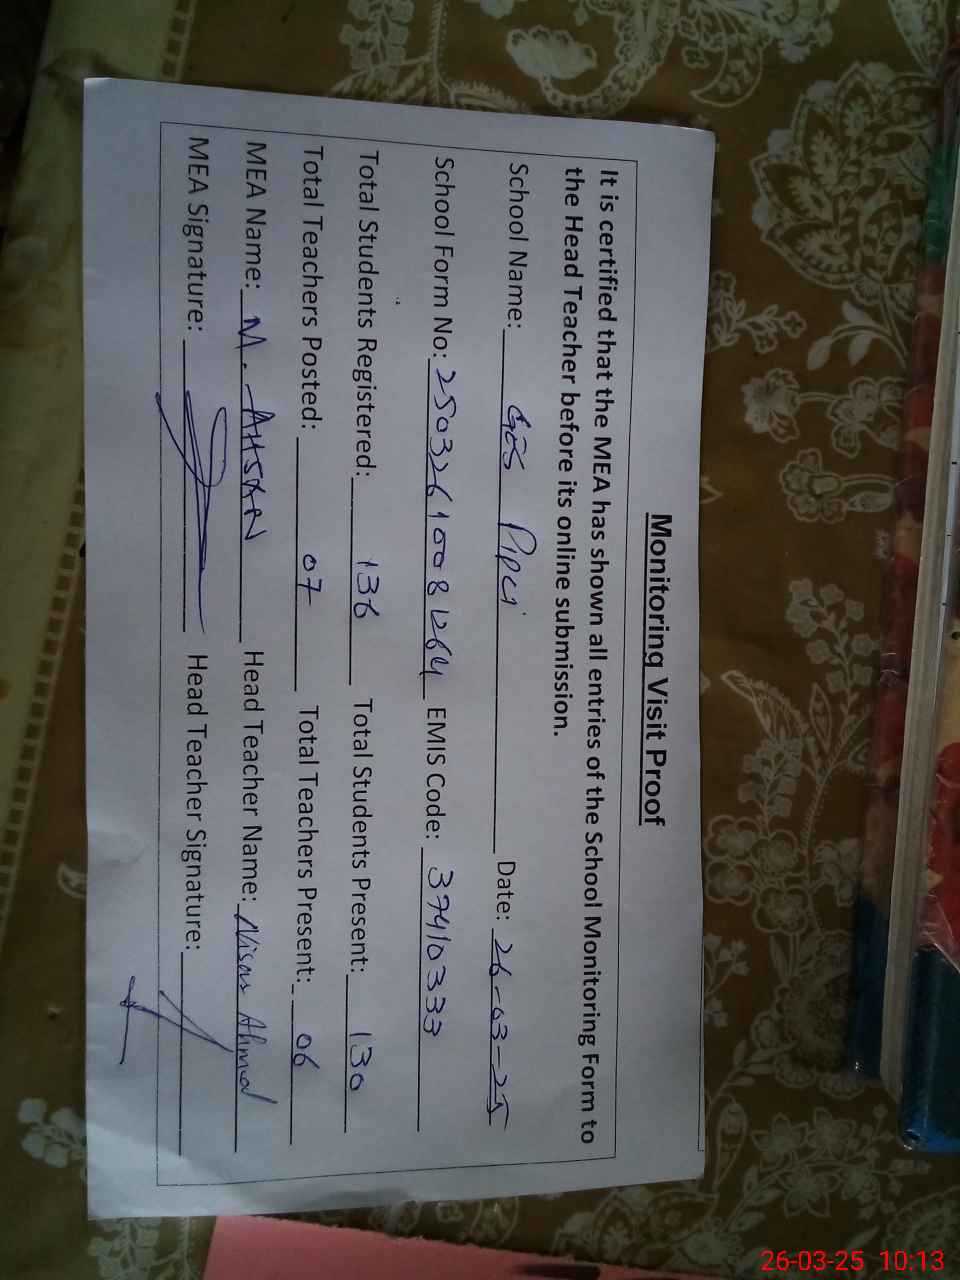 Monitoring Visit Proof
It is certified that the MEA has shown all entries of the School Monitoring Form to
the Head Teacher before its online submission.
School Name: GES Pipli Date: 26-03-25
School Form No: 25032610081264 EMIS Code: 37410333
Total Students Registered: 136 Total Students Present: 130
Total Teachers Posted: 07 Total Teachers Present: 06
MEA Name: M. AHSAN Head Teacher Name: Nisar Ahmad
MEA Signature: Head Teacher Signature:
26-03-25 10:13